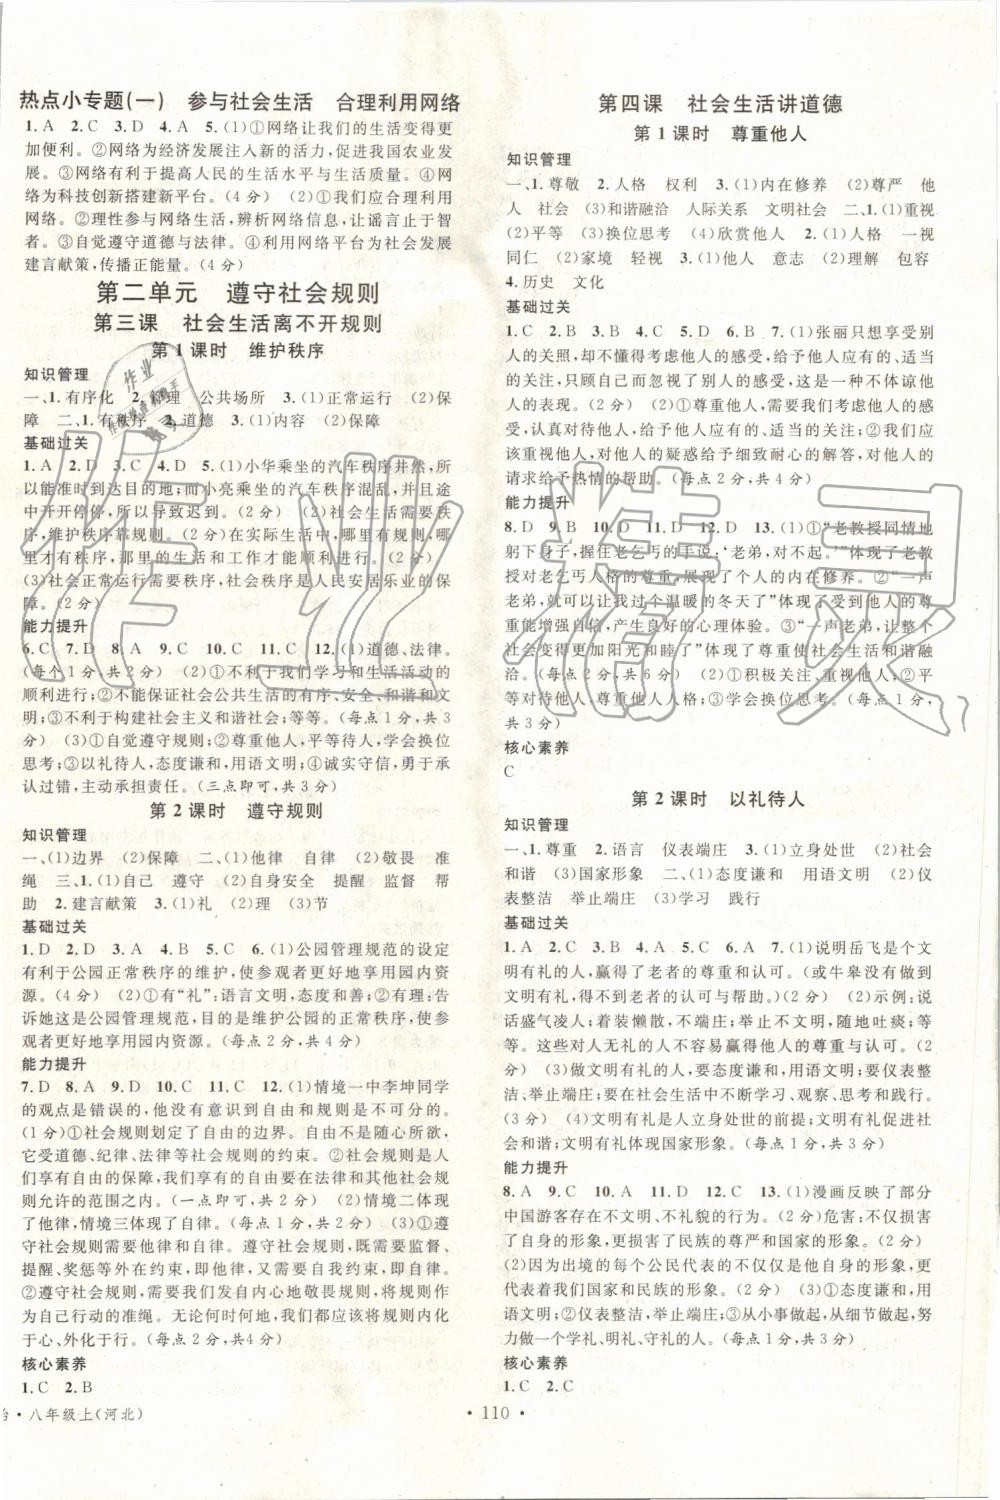 热点小专题(一)　参与社会生活　合理利用网络
1. A　2. C　3. D　4. A　5. (1)①网络让我们的生活变得更
加便利。②网络为经济发展注入新的活力,促进我国农业发
展。③网络有利于提高人民的生活水平与生活质量。④网
络为科技创新搭建新平台。(4分)　(2)①我们应合理利用
网络。②理性参与网络生活,辨析网络信息,让谣言止于智
者。③自觉遵守道德与法律。④利用网络平台为社会发展
建言献策,传播正能量。(4分)
第二单元　遵守社会规则
第三课　社会生活离不开规则
第1课时　维护秩序
知识管理
一、1. 有序化　2. 管理　公共场所　3. (1)正常运行　(2)保
障　二、1. 有秩序　2. 道德　3. (1)内容　(2)保障
基础过关
1. A　2. D　3. C　4. D　5. (1)小华乘坐的汽车秩序井然,所
以能准时到达目的地;而小亮乘坐的汽车秩序混乱,并且途
中开开停停,所以导致迟到。(2分)　(2)社会生活需要秩
序,维护秩序靠规则。(2分)在实际生活中,哪里有规则,哪
里才有秩序,那里的生活和工作才能顺利进行。(2分)
(3)社会正常运行需要秩序,社会秩序是人民安居乐业的保
障。(2分)
能力提升
6. C　7. D　8. A　9. A　10. C　11. C　12. (1)道德、法律。
(每个1分,共2分)　(2)①不利于我们学习和生活活动的
顺利进行;②不能保证社会公共生活的有序、安全、和谐和文
明;③不利于构建社会主义和谐社会;等等。(每点1分,共3
分)　(3)①自觉遵守规则;②尊重他人,平等待人,学会换位
思考;③以礼待人,态度谦和、用语文明;④诚实守信,勇于
承认过错,主动承担责任。(三点即可,共3分)
第2课时　遵守规则
知识管理
一、(1)边界　(2)保障　二、(1)他律　自律　(2)敬畏　准
绳　三、1. (1)自己　遵守　(2)自身安全　提醒　监督　帮
助　2. 建言献策　3. (1)礼　(2)理　(3)节
基础过关
1. D　2. D　3. A　4. B　5. C　6. (1)公园管理规范的设定
有利于公园正常秩序的维护,使参观者更好地享用园内资
源。(4分)　(2)①有“礼”:语言文明,态度和善;②有理:告
诉她这是公园管理规范,目的是维护公园的正常秩序,使参
观者更好地享用园内资源。(每点2分,共4分)
能力提升
7. D　8. A　9. D　10. C　11. C　12. (1)情境一中李坤同学
的观点是错误的,他没有意识到自由和规则的关系。
(1分)①社会规则划定了自由的边界。自由不是随心所欲,
它受道德、纪律、法律等社会规则的约束。②社会规则是人
们享有自由的保障,我们享有的自由在法律和其他社会规
则允许的范围之内。(一点即可,共1分)　(2)情境二体现
了他律,情境三体现了自律。(2分)　(3)①遵
守社会规则需要他律和自律。遵守社会规则,既需要监督、
提醒、奖惩等外在约束,即他律,也需要自我约束,即自律。
②遵守社会规则,需要我们发自内心地敬畏规则,将规则作
为自己行动的准绳。无论何时何地,我们都应该将规则内化
于心、外化于行。(每点2分,共4分)
核心素养
1. C　2. B
治·八年级上(河北)
第四课　社会生活讲道德
第1课时　尊重他人
知识管理
一、1. 尊敬　2. 人格　权利　3. (1)内在修养　(2)尊严　他
人　社会　(3)和谐融洽　人际关系　文明社会　二、1. (1)重视
(2)平等　(3)换位思考　(4)欣赏他人　2. (1)人格　一视
同仁　(2)家境　轻视　3. (1)他人　意志　(2)理解　包容
4. 历史　文化
基础过关
1. C　2. B　3. B　4. C　5. A　6. B　7. (1)张丽只想享受别
人的关注,却不懂得考虑他人的感受,给予他人应有的、适当
的关注,只顾自己而忽视了别人的感受,这种不体谅他
人的表现。(2分)　(2)①尊重他人,需要我们考虑他人的感
受,认真对待他人,给予他人应有的、适当的关注;②我们应
该重视他人,对他人的疑惑给予细致耐心的解答,对他人的
请求给予热情的帮助。(每点2分,共4分)
能力提升
8. D　9. B　10. D　11. D　12. D　13. (1)①“老教授同情地
躬下身子,握住老乞丐的手说:‘老弟,对不起。’”体现了老教
授对老乞丐人格的尊重,展现了个人的内在修养。②“一声
老弟,却可以让我过个温暖的冬天了”体现了受到他人的尊
重能增强自信,产生良好的心理体验。③“一声老弟,让整个
社会变得更加阳光和睦了”体现了尊重使社会生活和谐融
洽。(每点2分,共6分)　(2)①积极关注、重视他人;②平
等对待他人,尊重他人人格;③学会换位思考。(每点1分,
共3分)
核心素养
C
第2课时　以礼待人
知识管理
一、1. 尊重　2. 语言　仪表端庄　3. (1)立身处世　(2)社会
和谐　(3)国家形象　二、(1)态度谦和　用语文明　(2)仪
表整洁　举止端庄　(3)学习　践行
基础过关
1. A　2. B　3. B　4. C　5. C　6. A　7. (1)说明岳飞是个文
明有礼的人,赢得了老者的尊重和认可。(或牛皋没有礼
貌,因而得不到老者的认可与帮助。)(2分)　(2)示例:说
话盛气凌人;着装懒散,不端庄;举止不文明,随地吐痰;等
等。这些对人无礼的人不容易赢得他人的尊重与认可。(2分)
(3)做文明有礼的人,要做到态度谦和,用语文明;仪表整洁,
举止端庄;要在社会生活中不断学习、观察、思考和践行。
(3分)　(4)文明有礼是人立身处世的前提;文明有礼促进社
会和谐;文明有礼体现国家形象。(每点1分,共3分)
能力提升
8. A　9. C　10. C　11. D　12. C　13. (1)漫画反映了部分
中国游客存在不文明、不礼貌的行为。(2分)危害:不仅损害
了自身的形象,更损害了民族的尊严和国家的形象。(2分)
(2)因为出境的每个公民代表的不仅仅是他自身的形象,更
代表着我们国家和民族的形象。(2分)　(3)①态度谦和,用
语文明;②仪表整洁,举止端庄;③从小事做起,从细节做起,
努力做一个学礼、明礼、守礼的人。(每点1分,共3分)
核心素养
1. C　2. C
· 110 ·
作业精灵